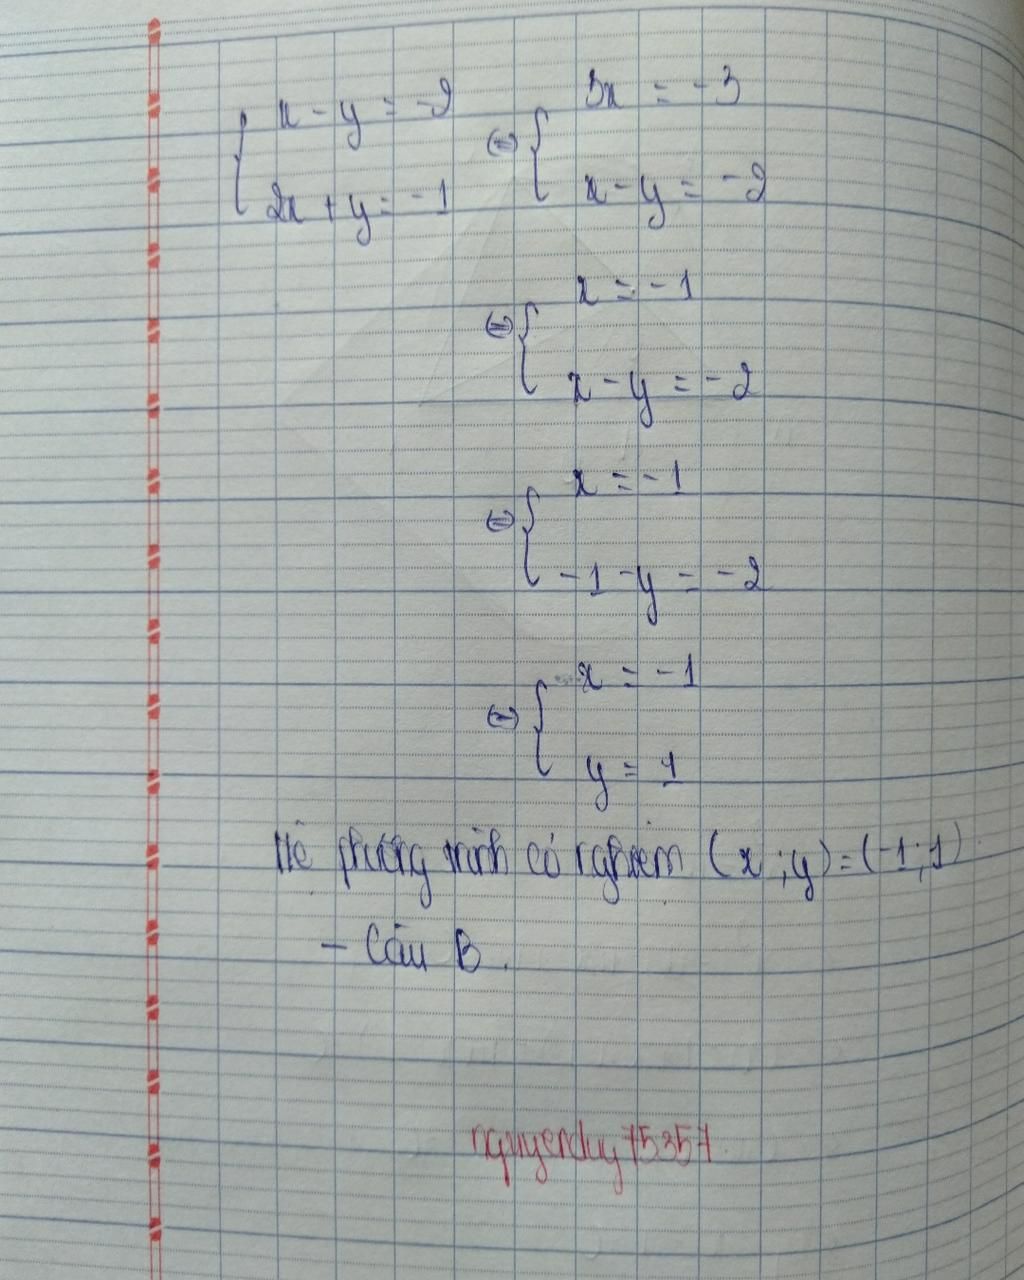 { x - y = -2 ⇔ { 3x = -3
2x + y = -1 x - y = -2
⇔ { x = -1
x - y = -2
⇔ { x = -1
-1 - y = -2
⇔ { x = -1
y = 1
Hệ phương trình có nghiệm (x ; y) = (-1; 1)
- Câu B.
nguyenduy75357